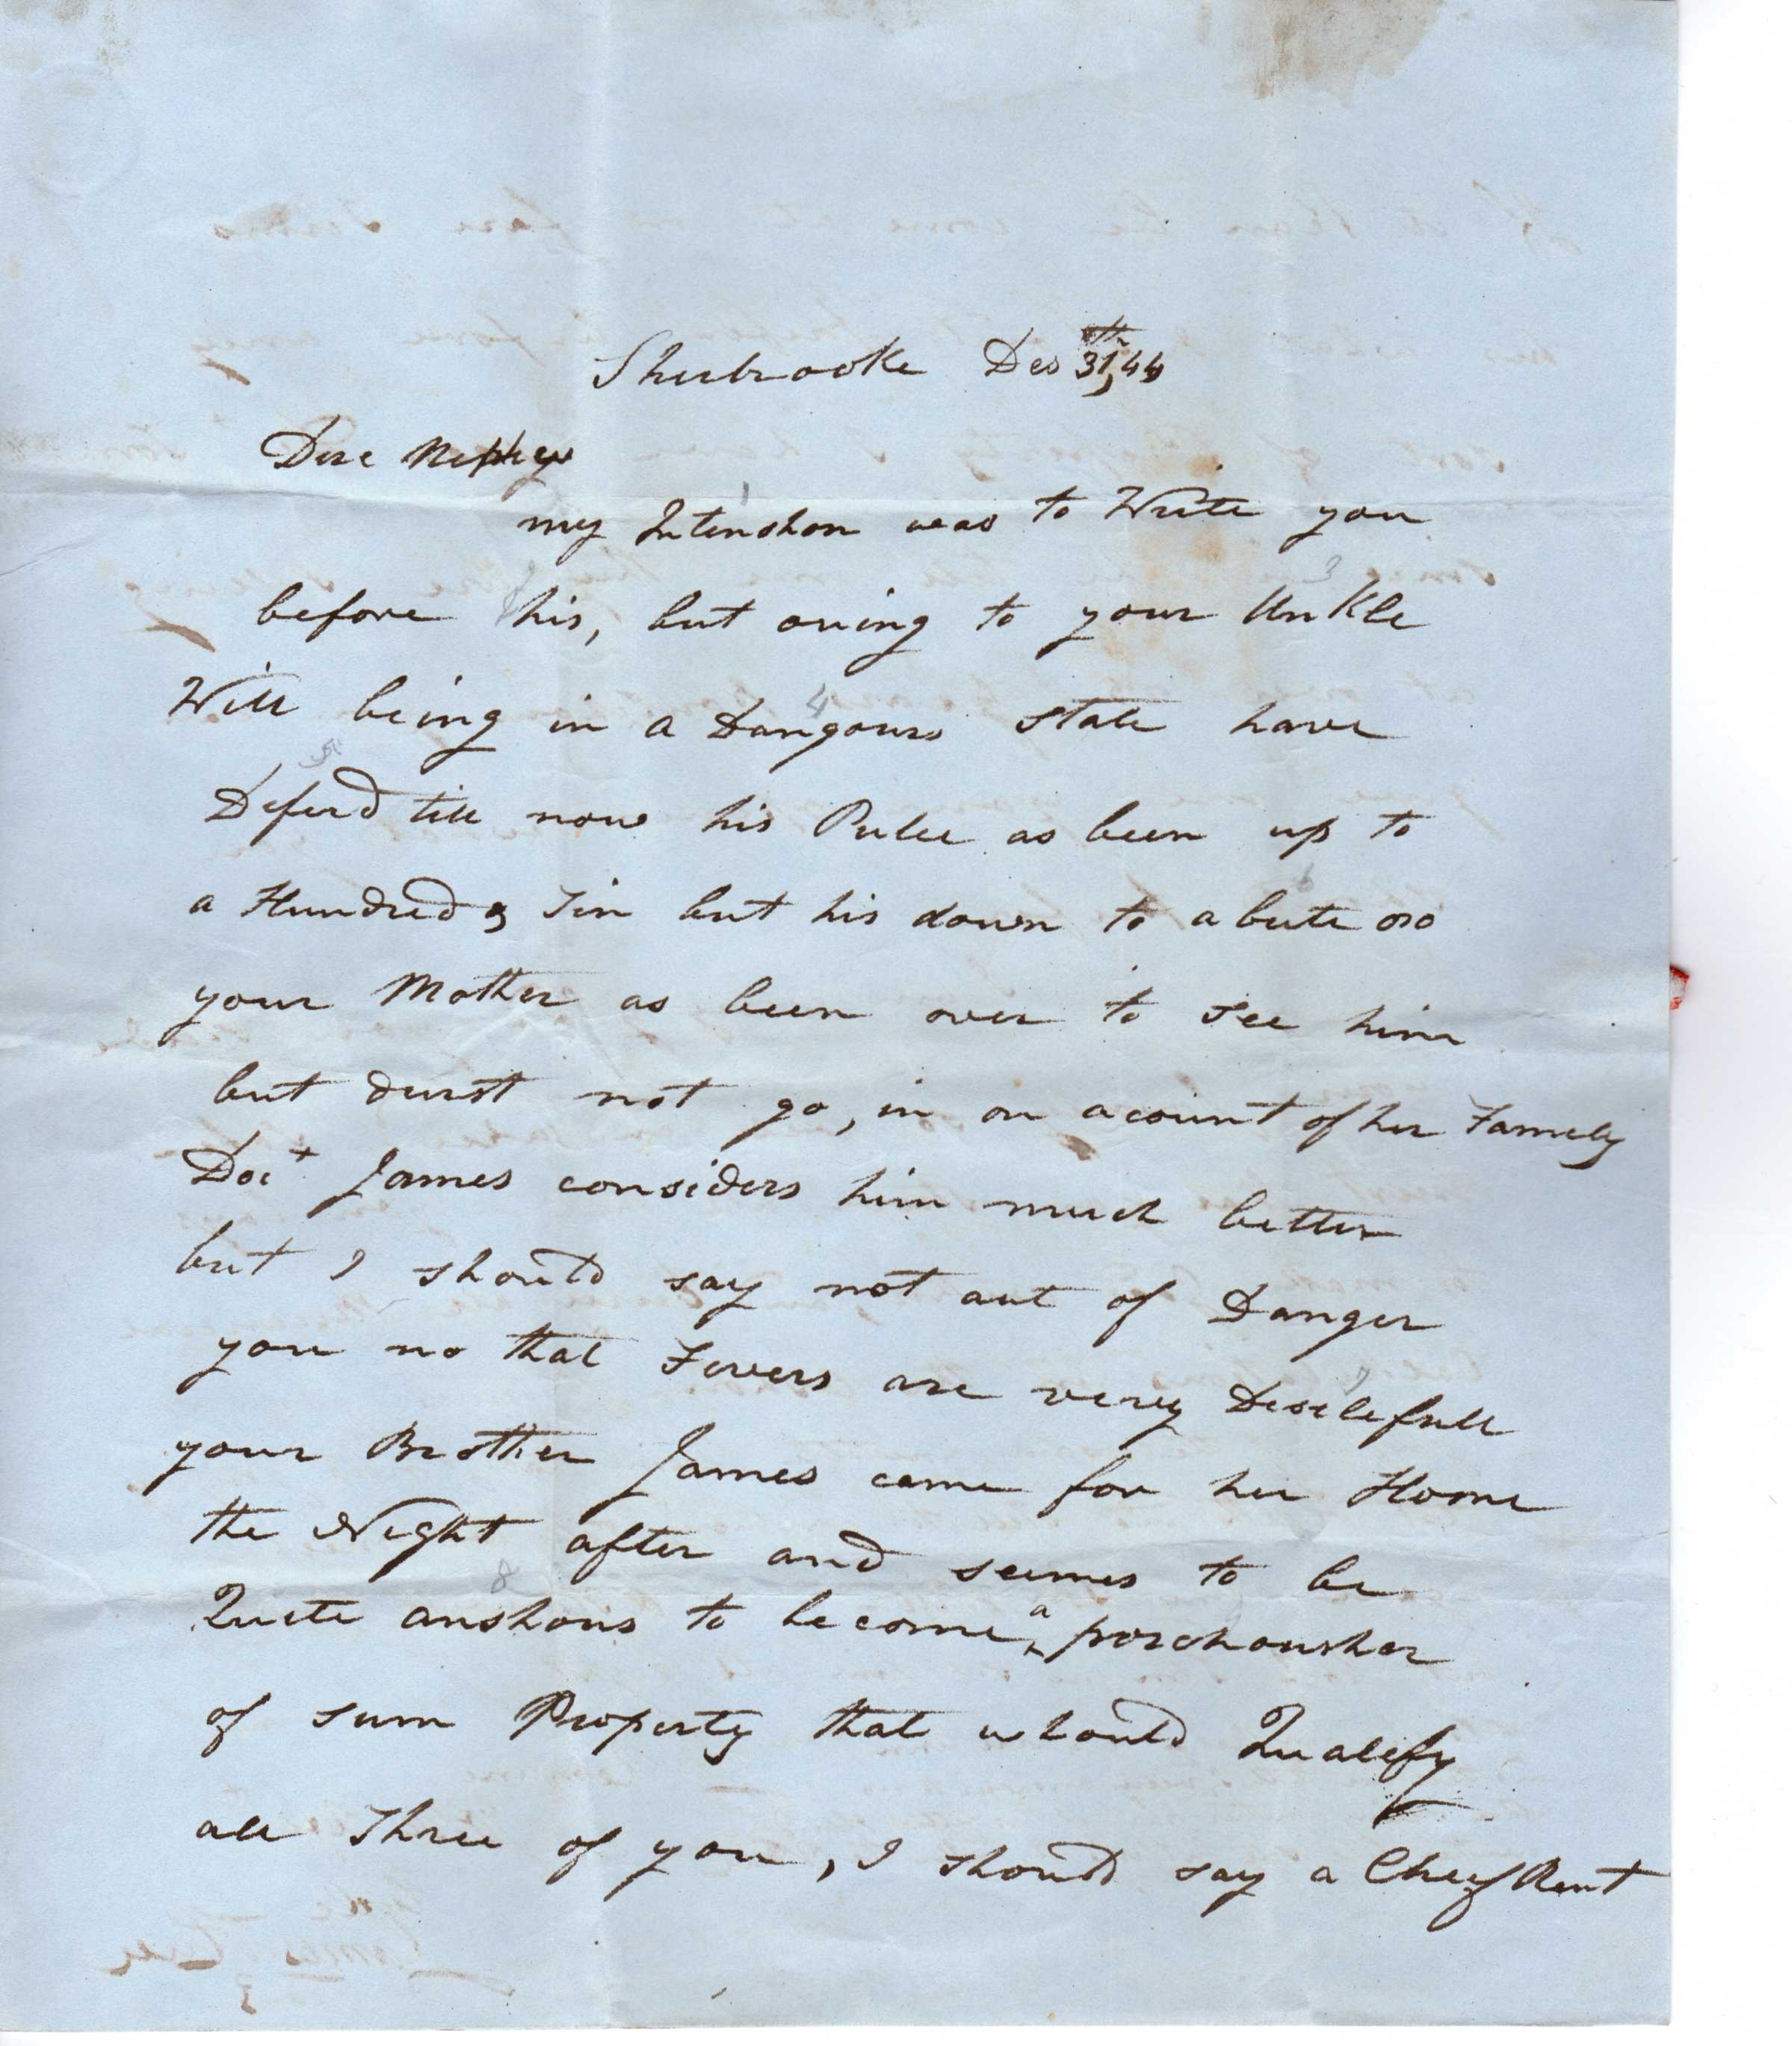 Sherbrooke Des 31th, 44
Dere Nephew
my Intenshon was to Write you
before this, but owing to your Unkle
Will being in a Dangours state have
Deferd till now his Pulce as been up to
a Hundred & Tin but his down to a bute
your Mother as been over to see him
but durst not go, in on acount of her Famely
Doct James considers him much better
but I should say not out of Danger
you no that Fevers are very Desilefull
your Brother James came for her Home
the Night after and seemes to be
Quite anshous to become a porchousher
of sum Property that whould Qualefy
all Three of you, I should say a Cheef Rent